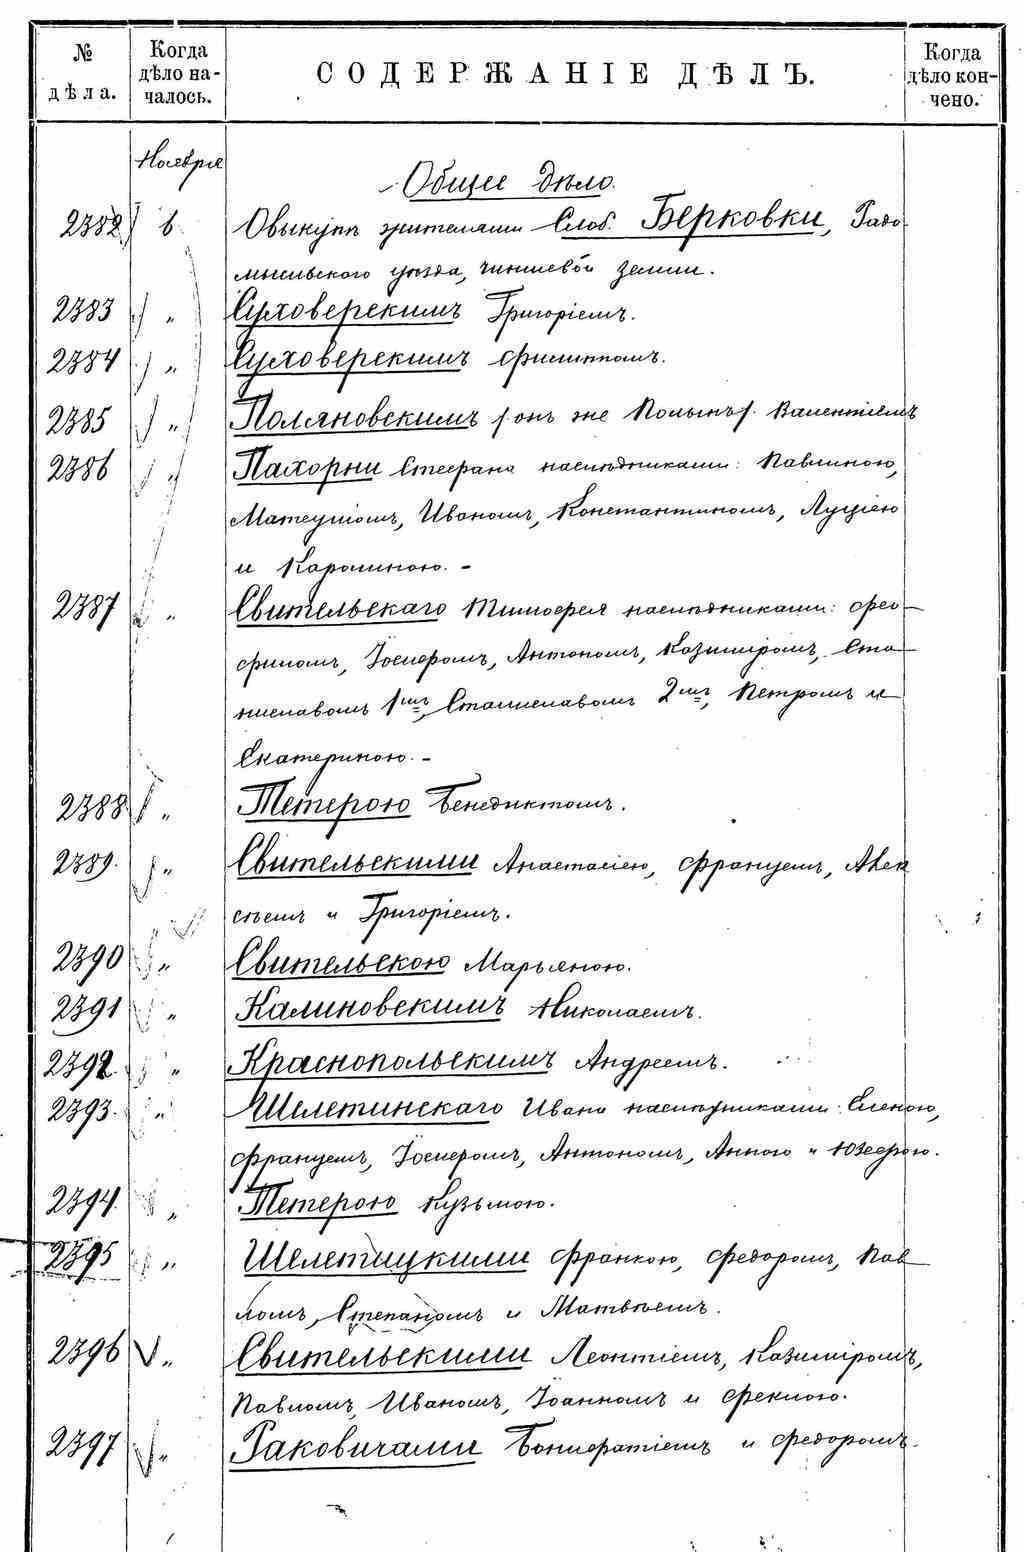 № дѣла. Когда дѣло на-чалось. СОДЕРЖАНІЕ ДѢЛЪ. Когда дѣло кон-чено.
Ноября
Общее дѣло.
2382 6 О выкупѣ жителями Слоб. Берковки, Радо-
мысльскаго уѣзда, чиншевой земли.
2383 " Суховерскимъ Григоріемъ.
2384 " Суховерскимъ Филиппомъ.
2385 " Поляновскимъ /онъ же Полынъ/. Валентіемъ
2386 " Пахорни Стефана наслѣдниками: Павлиною,
Матеушомъ, Иваномъ, Константиномъ, Луціею
и Каролиною. -
2387 " Свительскаго Тимофея наслѣдниками: Фео-
филомъ, Іосифомъ, Антономъ, Казиміромъ, Ста-
ниславомъ 1мъ, Станиславомъ 2мъ, Петромъ и
Екатериною. -
2388 " Тетерою Бенедиктомъ.
2389. " Свительскими Анастасіею, Францемъ, Алек
сѣемъ и Григоріемъ.
2390 " Свительскою Марьяною.
2391 " Калиновскимъ Николаемъ.
2392 " Краснопольскимъ Андреемъ.
2393. " Шелетинскаго Ивана наслѣдниками: Еленою,
Францемъ, Іосифомъ, Антономъ, Анною и Юзефою.
2394. " Тетерою Кузьмою.
2395 " Шелетицкими Франкою, Федоромъ, Пав
ломъ, Степаномъ и Матвѣемъ.
2396 " Свительскими Леонтіемъ, Казиміромъ,
Павломъ, Иваномъ, Іоанномъ и Феклою.
2397 " Раковичами Бонифатіемъ и Федоромъ.